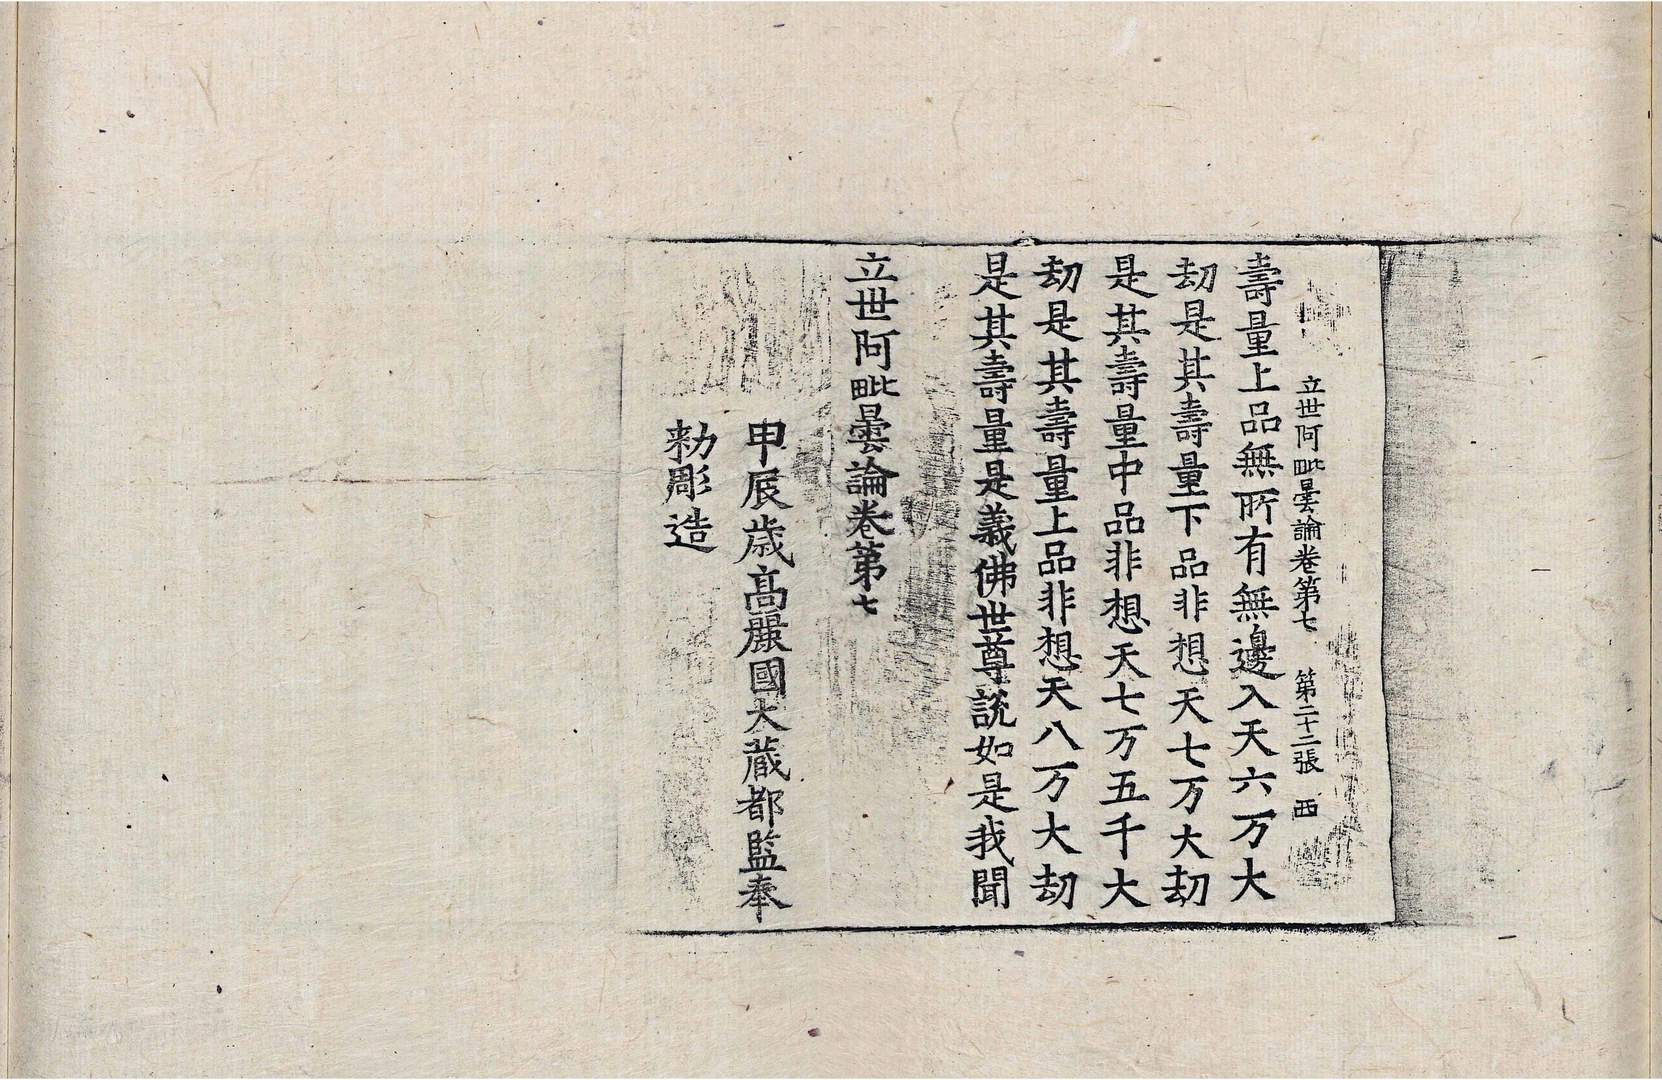 立世阿毗曇論卷第七　第二十二張　西
壽量上品無所有無邊入天六万大
劫是其壽量下品非想天七万大劫
是其壽量中品非想天七万五千大
劫是其壽量上品非想天八万大劫
是其壽量是義佛世尊說如是我聞
立世阿毗曇論卷第七
甲辰歳髙麗國大藏都監奉
勑彫造